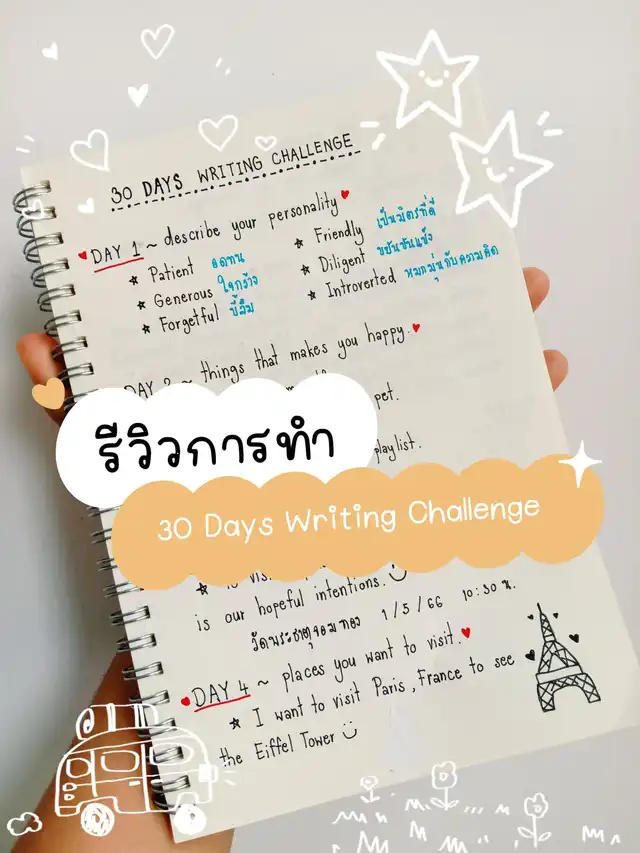 30 DAYS WRITING CHALLENGE
DAY 1 ~ describe your personality
★ Patient อดทน
★ Generous ใจกว้าง
★ Forgetful ขี้ลืม
★ Friendly เป็นมิตรที่ดี
★ Diligent ขยันขันแข็ง
★ Introverted หมกมุ่นกับความคิด
DAY 2 ~ things that makes you happy.
pet.
playlist.
รีวิวการทำ
30 Days Writing Challenge
is our hopeful intentions.
วัดพระธาตุจอมทอง 1/5/66 10:30 น.
DAY 4 ~ places you want to visit.
★ I want to visit Paris, France to see
the Eiffel Tower